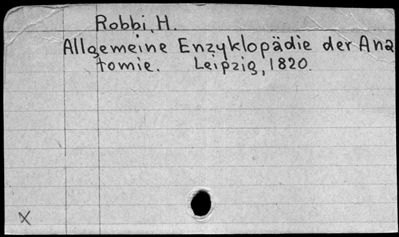 Robbi, H.
Allgemeine Enzyklopädie der Ana
tomie. Leipzig, 1820.
X